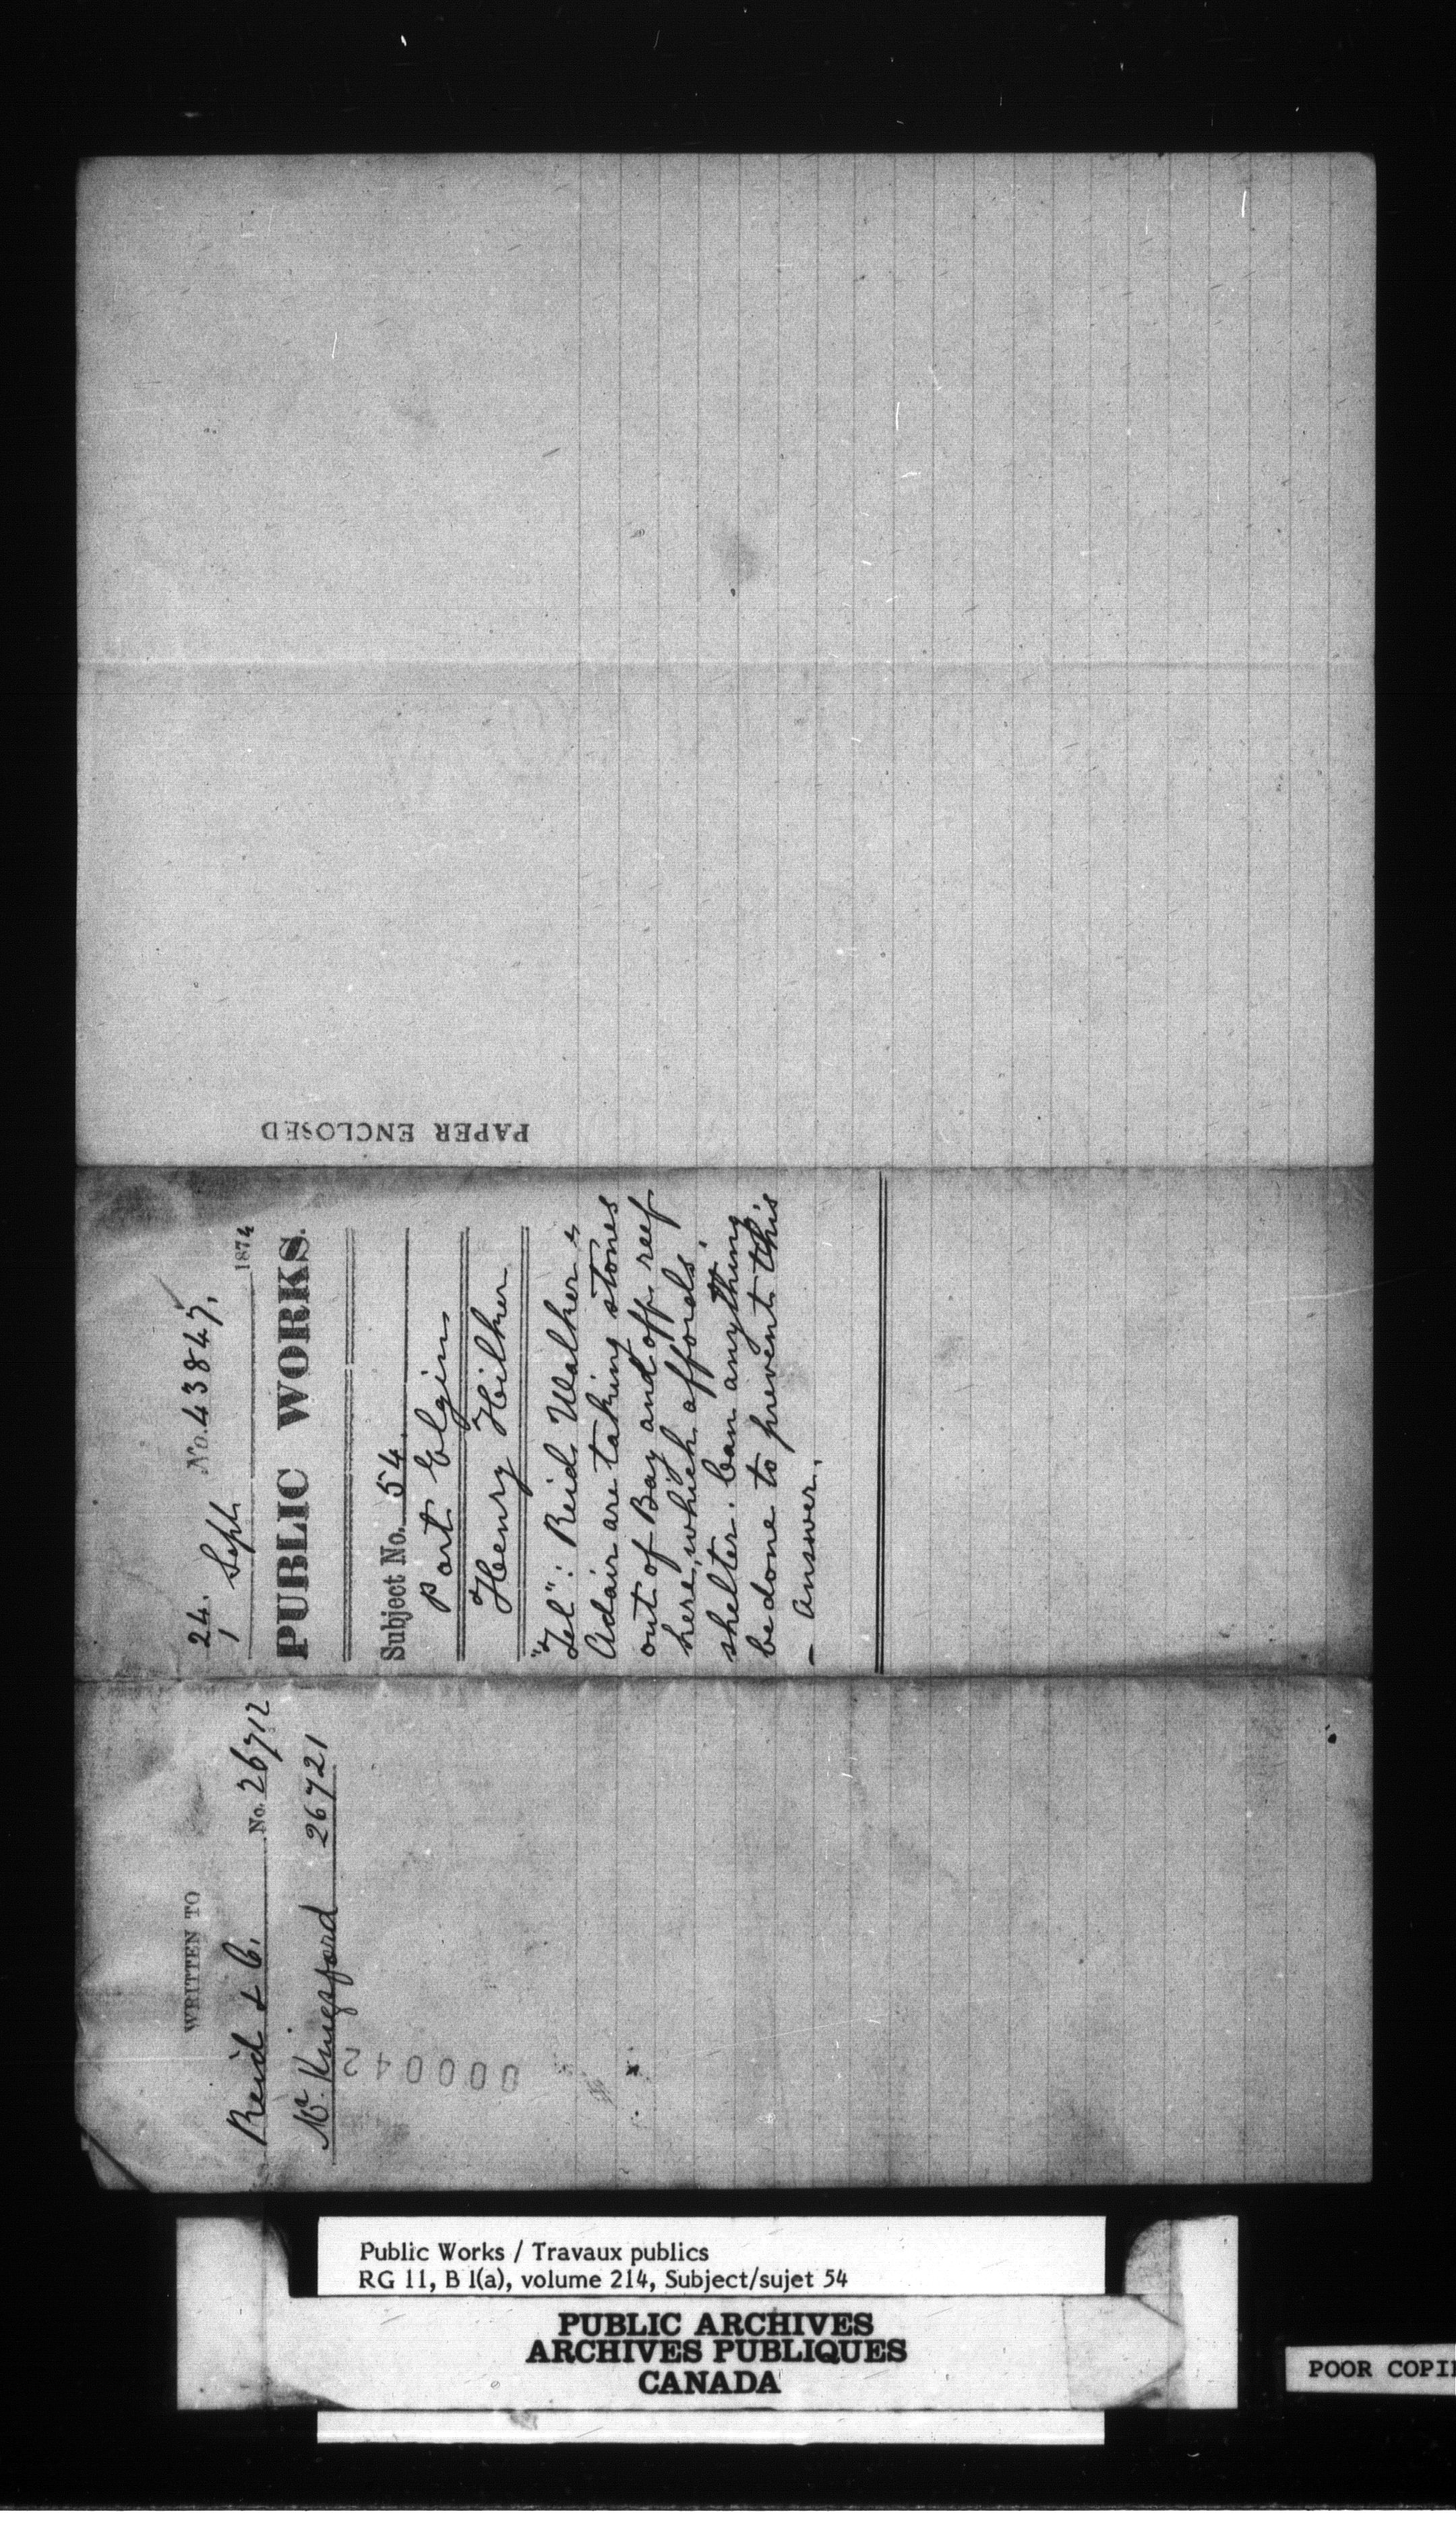 PAPER ENCLOSED
24. No. 43847.
Sept 1874
PUBLIC WORKS.
Subject No. 54
Port Elgin
Henry Hilker
"Tel": Reid Walker &
Adair are taking stones
out of Bay and off reef
here, which affords
shelter. Can anything
be done to prevent this
- Answer.
WRITTEN TO
Reid & C. No. 26712
Mr. Kingsford 26721
000042
Public Works / Travaux publics
RG 11, B 1(a), volume 214, Subject/sujet 54
PUBLIC ARCHIVES
ARCHIVES PUBLIQUES
CANADA
POOR COPI